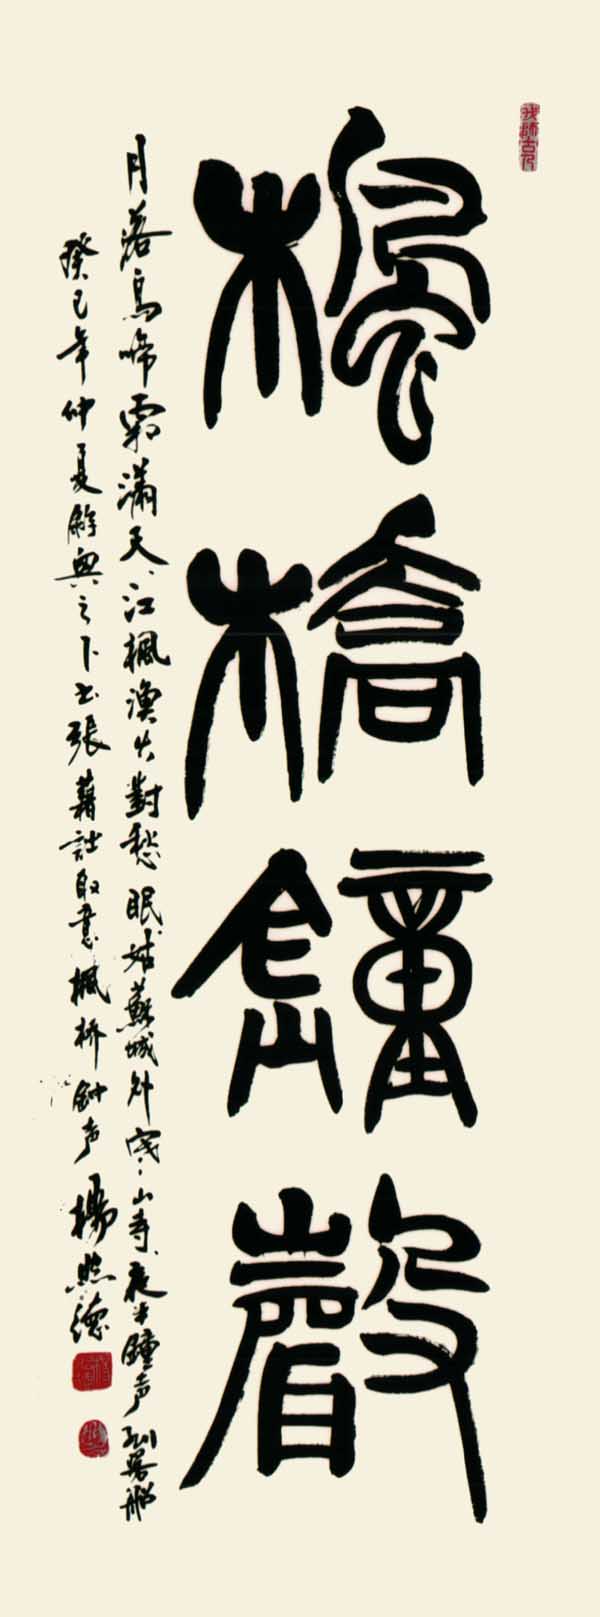 我師古人
楓橋鐘聲
月落烏啼霜滿天、江楓漁火對愁眠姑蘇城外寒山寺、夜半鐘声到客船
癸巳年仲夏興之下书張藉詩取意楓桥鈡声 楊德